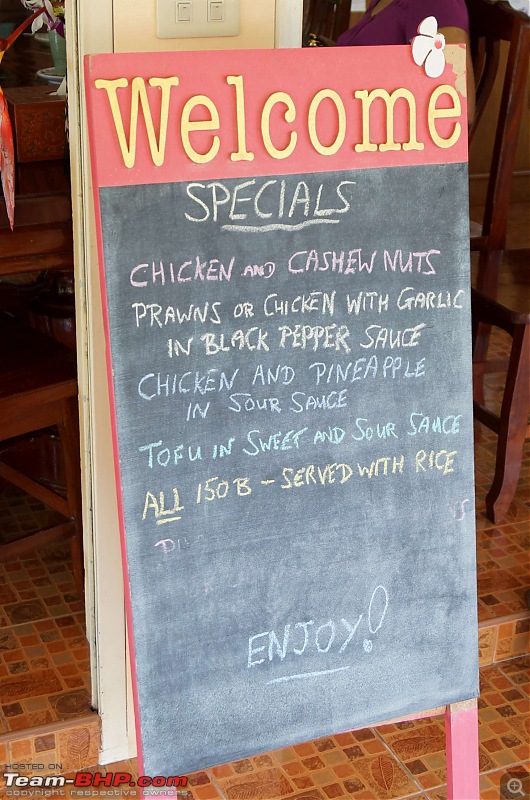 Welcome
SPECIALS
CHICKEN AND CASHEW NUTS
PRAWNS OR CHICKEN WITH GARLIC
IN BLACK PEPPER SAUCE
CHICKEN AND PINEAPPLE
IN SOUR SAUCE
TOFU IN SWEET AND SOUR SAUCE
ALL 150B - SERVED WITH RICE
ENJOY!
HOSTED ON
Team-BHP.com
copyright respective owners